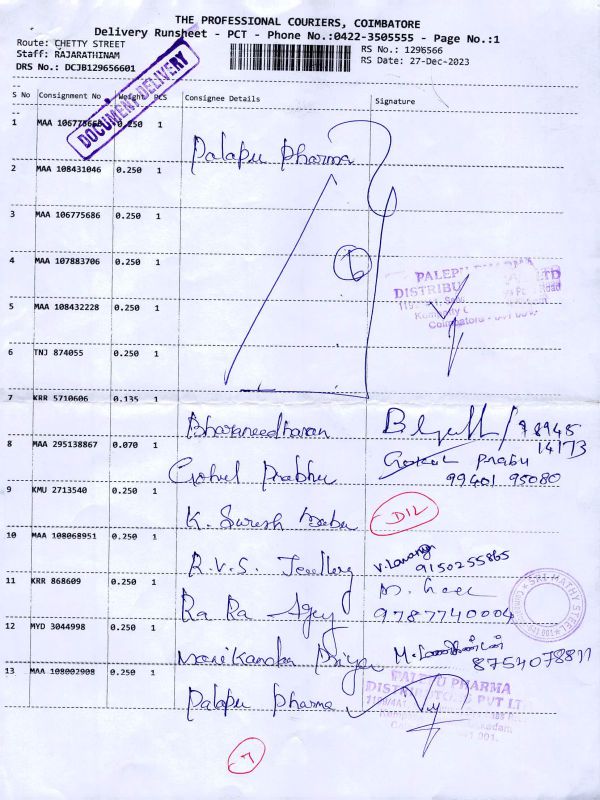 THE PROFESSIONAL COURIERS, COIMBATORE
Delivery Runsheet - PCT - Phone No.:0422-3505555 - Page No.:1
Route: CHETTY STREET
RS No.: 1296566
Staff: RAJARATHINAM
RS Date: 27-Dec-2023
DRS No.: DCJB129656601
DOCUMENT DELIVERY
S No Consignment No Weight PCS Consignee Details Signature
1 MAA 0.250 1
Palapu Pharma
2 MAA 108431046 0.250 1
3 MAA 106775686 0.250 1
4 MAA 107883706 0.250 1
6
PALEPU PHARMA
DISTRIBUT LTD
5 MAA 108432228 0.250 1
Coimbatore
6 TNJ 874055 0.250 1
7 KRR 5710606 0.135 1
Bharaneedharan
78945
14173
8 MAA 295138867 0.070 1
Gohul Prabhu
Gokul Prabu
99401 95080
9 KMU 2713540 0.250 1
K. Suresh Babu
DIL
10 MAA 108068951 0.250 1
R.V.S. Jewllery
9150255865
11 KRR 868609 0.250 1
Ra Ra Agcy
9787740004
SRI MATHY STEEL
12 MYD 3044998 0.250 1
Manikandan Priya
8754078811
13 MAA 108002908 0.250 1
Palapu Pharma
PALEPU PHARMA
DISTRIBUTORS PVT LT
7